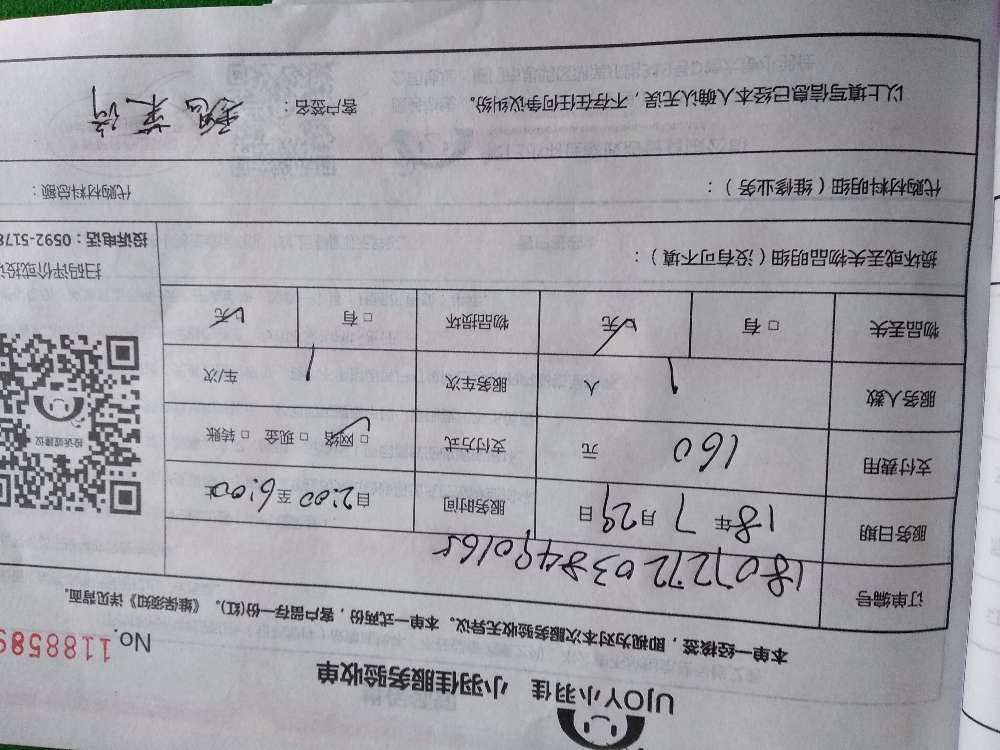 UJOY小羽佳 小羽佳服务验收单
本单一经核签，即视为对本次服务验收无异议。本单一式两份，客户留存一份(红)。《维保须知》详见背面。
No. 1188589
订单编号 1807272038490165
服务日期 18年7月29日 服务时间 自2:00至6:00止
支付费用 160 元 支付方式 □网络 □现金 □转账
服务人数 1 人 服务车次 1 车/次
物品丢失 □有 □无 物品损坏 □有 □无
投诉或建议
扫码评价或投诉
投诉电话：0592-5178
损坏或丢失物品明细（没有可不填）：
代购材料明细（维修业务）： 代购材料总额：
以上填写信息已经本人确认无误，不存在任何争议纠纷。 客户签名：